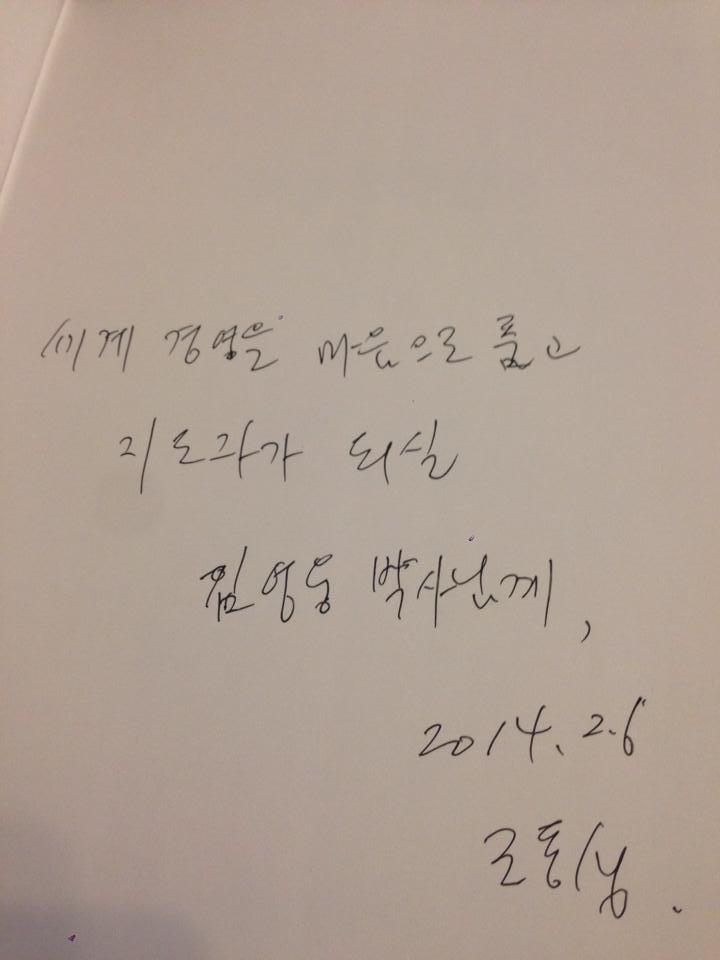 세계 경영을 마음으로 품고
지도자가 되실
김영동 박사님께,
2014. 2.6
조동성.